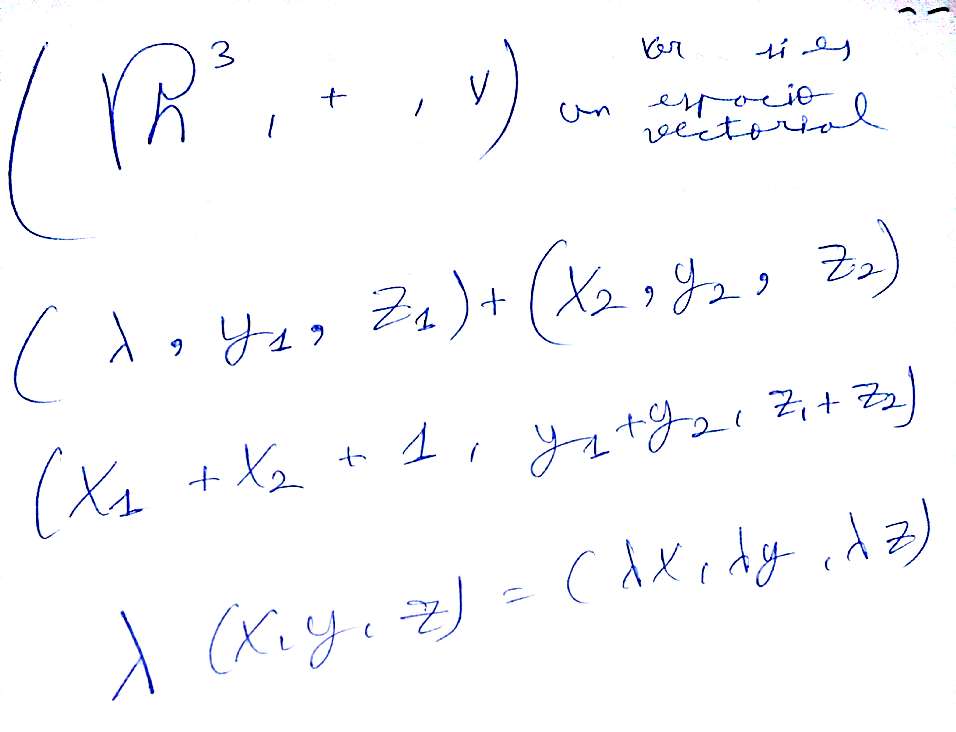 (ℝ³, +, v) Ver si es
un espacio
vectorial
(λ, y₁, z₁) + (x₂, y₂, z₂)
(x₁ + x₂ + 1, y₁ + y₂, z₁ + z₂)
λ (x, y, z) = (λx, λy, λz)